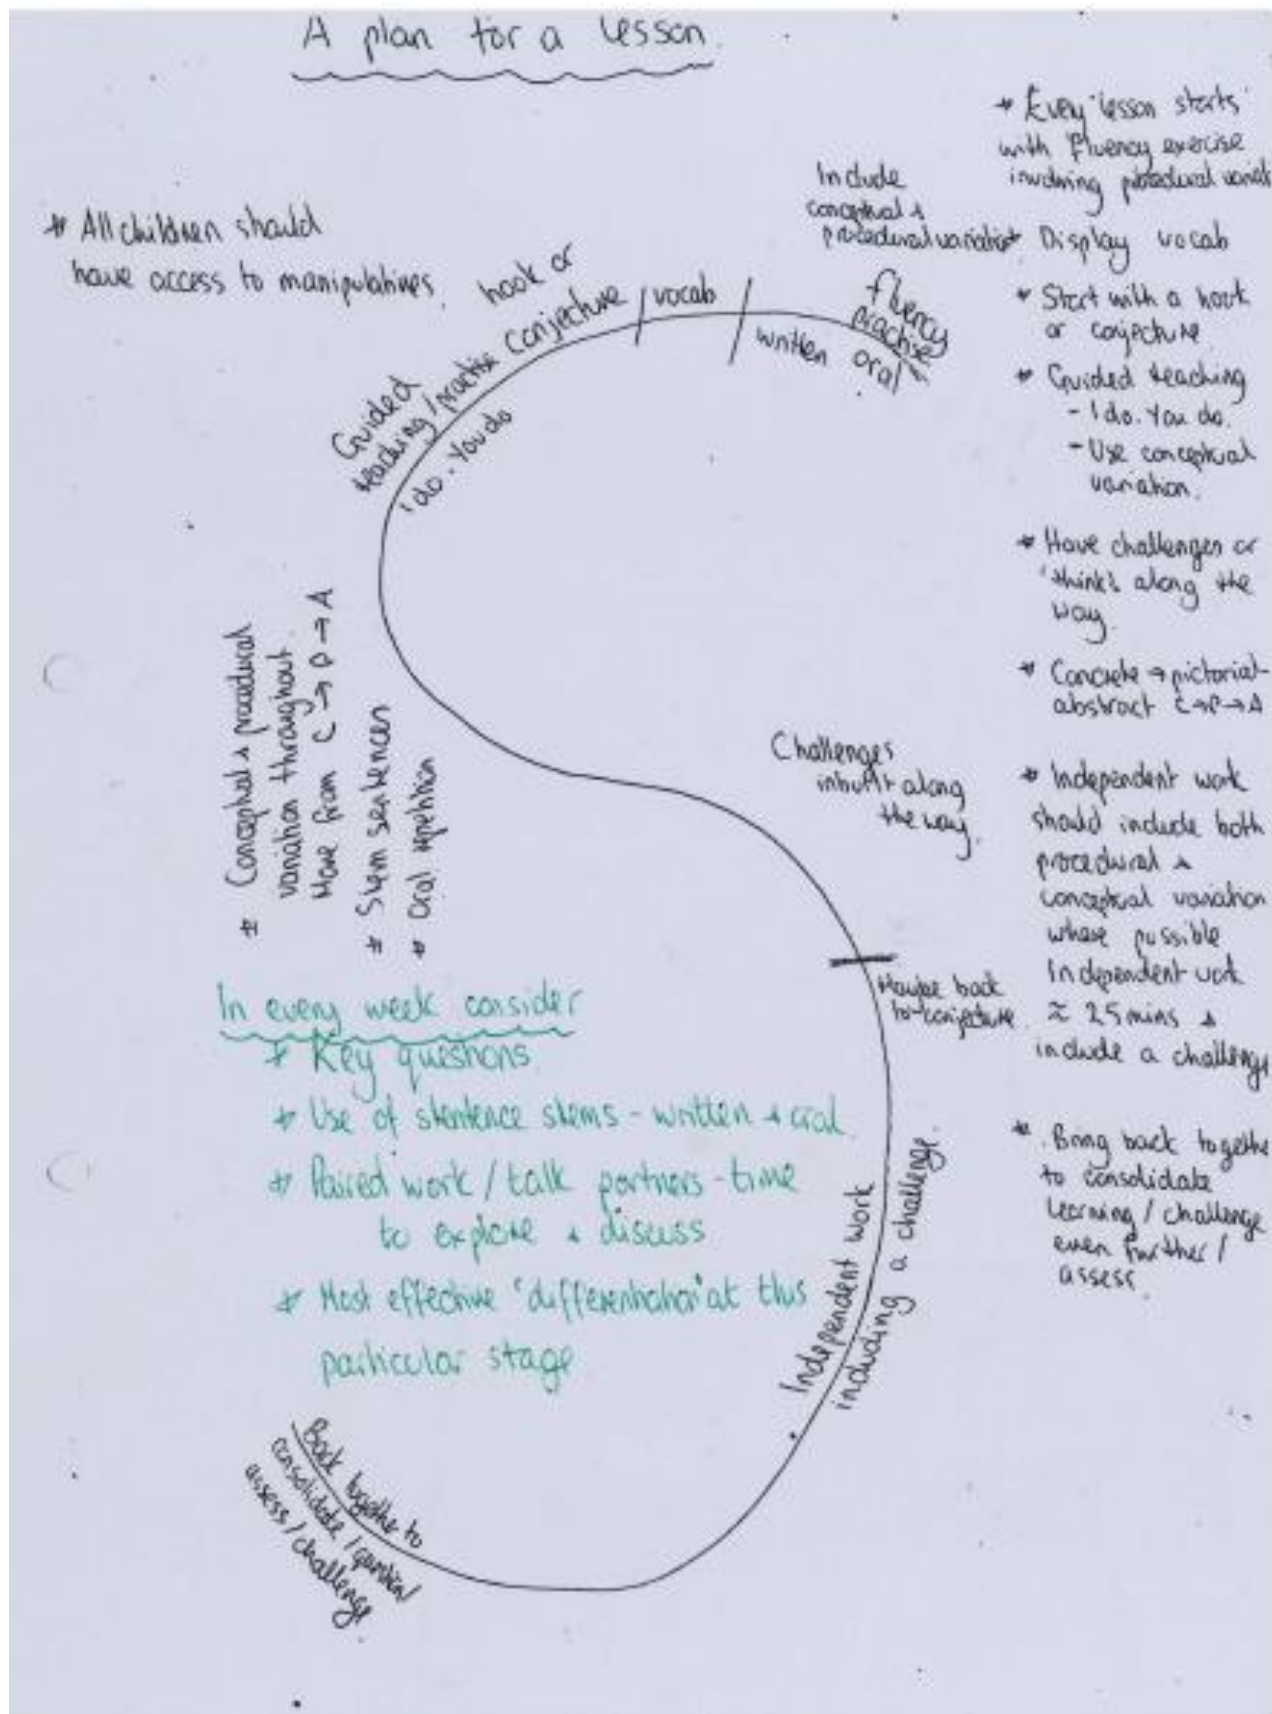 A plan for a lesson.
* All children should
have access to manipulatives.
hook or
conjecture
vocab
Include
conceptual +
procedural variation
fluency
practise
written oral
Guided
teaching/practise
I do. You do
* Conceptual + procedural
variation throughout.
Move from C → P → A
* Stem sentences
* Oral repetition
Challenges
inbuilt along
the way.
Maybe back
to conjecture.
Independent work
including a challenge.
Back together to
consolidate / question/
assess/challenge.
In every week consider
* Key questions
* Use of stentence stems - written + oral.
* Paired work / talk partners - time
to explore + discuss
* Most effective 'differentiation' at this
particular stage
* Every lesson starts
with fluency exercise
involving procedural variati
* Display vocab
* Start with a hook
or conjecture.
* Guided teaching
- I do. You do.
- Use conceptual
variation.
* Have challenges or
'thinks' along the
way.
* Concrete → pictorial
abstract C→P→A
* Independent work
should include both
procedural +
conceptual variation
where possible
Independent work
≈ 25 mins +
include a challenge
* Bring back togethe
to consolidate
learning / challenge
even further /
assess.